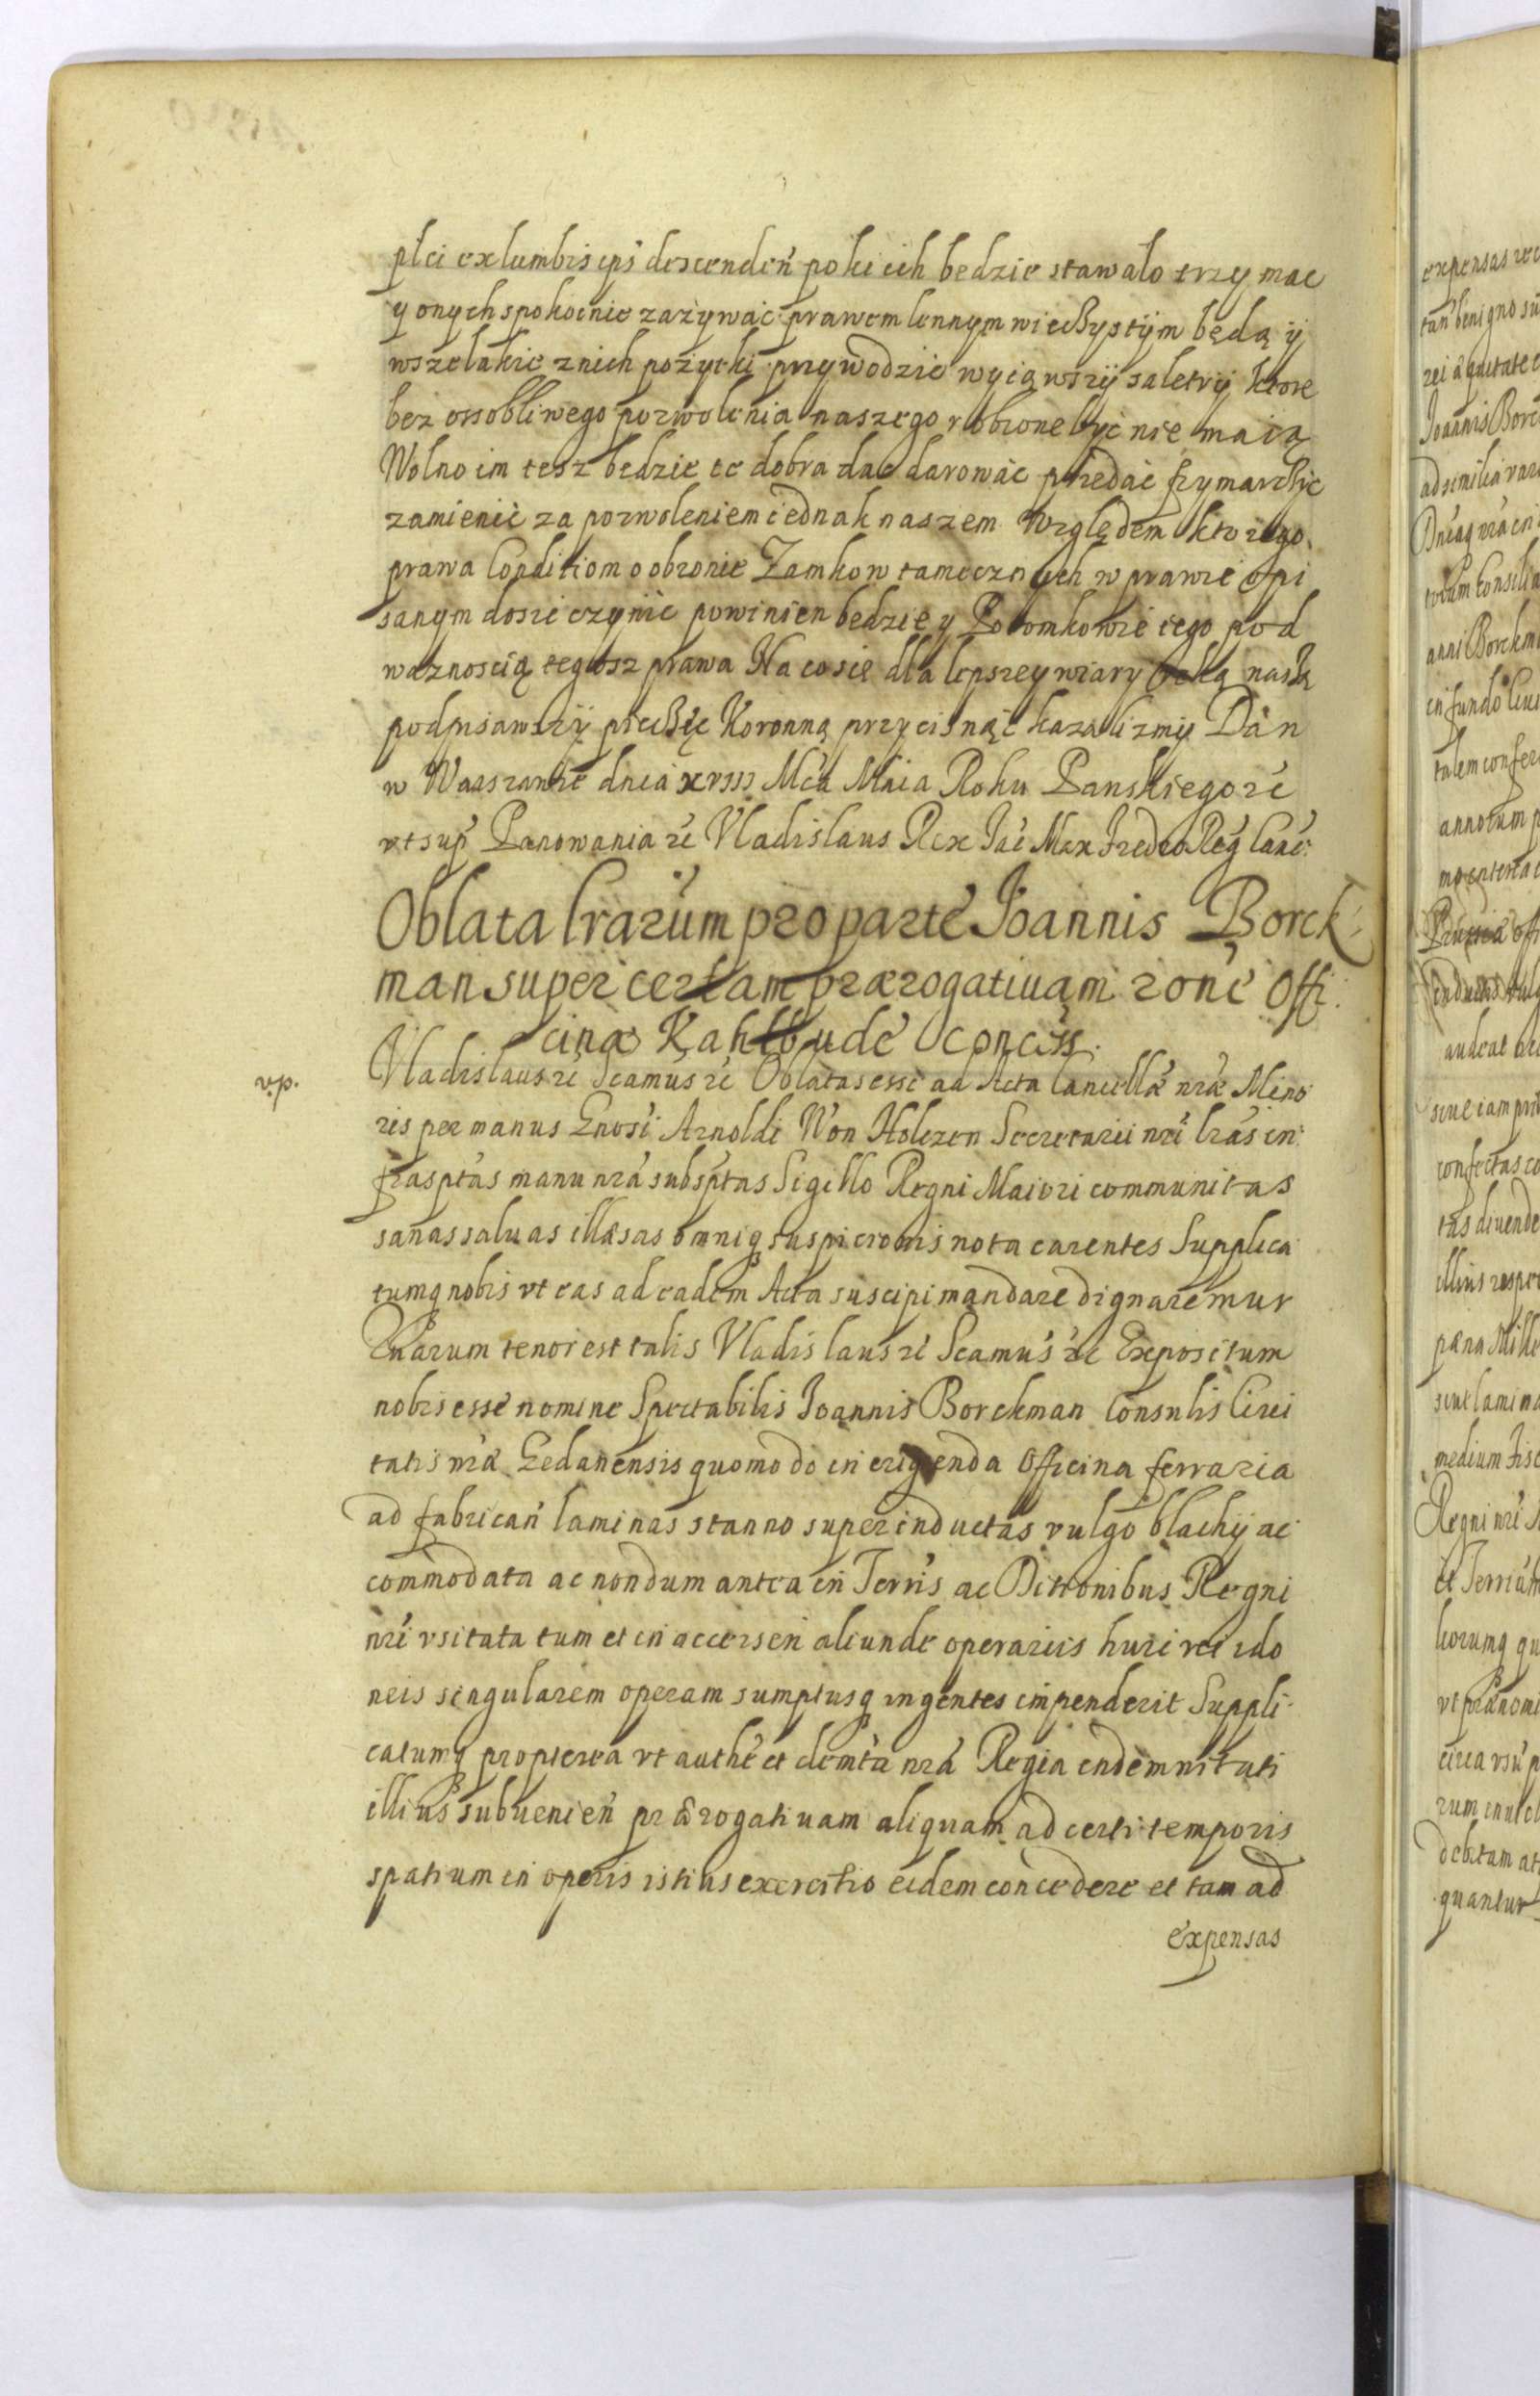 płci ex lumbis eps descendeń poki ich bedzie stawało trzymac
y onych spokoinie zazywać prawem lennym wieczystÿm będą ÿ
wszelakie z nich pożytki przywodzić wyiąwszÿ saletrÿ ktore
bez ossobliwego pozwolenia naszego robione być nie maią
Wolno im tesz bedzie te dobra dac darować przedać frymarczyc
zamienić za pozwoleniem iednak naszem Względem ktorego
prawa Conditiom o obronie Zamkow tamecznych w prawie opi
sanym dosić czynić powinien bedzie y Potomkowie iego pod
waznoscią tegosz prawa Na co sie dla lepszey wiary Ręką naszą
podpisawszÿ pieczęć Koronną przycisnąć kazalismÿ Dan
w Warszawie dnia xviij Mca Maia Roku Panskiego zć
vt sup Panowania zć Vladislaus Rex Jac Max Fredro Reg Canc:
Oblata lrarum pro parte Joannis Borck
man super certam prærogatiuam rone Offi
cinæ Kahlbude conciss.
v.p.
Vladislaus zć Scamus zć Oblatas esse ad Acta Cancellæ nræ Mino
ris per manus Gnosi Arnoldi Von Holczen Secretarii nri lras in:
frasptas manu nra subsptas Sigillo Regni Maiori communitas
sanas saluas illæsas omniq suspicionis nota carentes Supplica
tumq nobis vt eas ad eadem Acta suscipi mandare dignaremur
Quarum tenor est talis Vladislaus zć Scamus zć Expositum
nobis esse nomine Spectabilis Joannis Borckman Consulis Ciui
tatis nræ Gedanensis quomodo in erigenda Officina ferraria
ad fabrican laminas stanno superinductas vulgo blachÿ ac
commodata ac nondum antea in Terris ac Ditionibus Regni
nri vsitata tum et in accersen aliunde operariis huic rei ido
neis singularem operam sumptusq ingentes impenderit Suppli
catumq propterea vt authe et clemta nra Regia indemnitati
illius subuenien prærogatiuam aliquam ad certi temporis
spatium in operis istius exercitio eidem concedere et tam ad
expensas